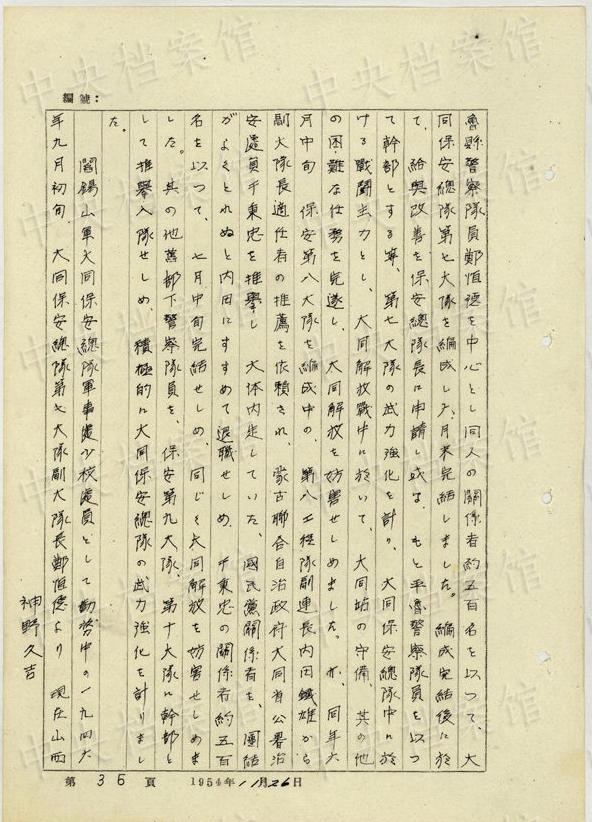 編號：
魯縣警察隊員鄭恒德を中心とし同人の關係者約五百名を以つて、大
同保安總隊第七大隊を編成し六月末完結しました。編成完結後に於
て、給與改善を保安總隊長に申請し或は、もと平魯警察隊員を以つ
て幹部とする等、第七大隊の武力強化を計り、大同保安總隊中に於
ける戰鬪主力とし、大同解放戰中に於いて、大同站の守備、其の他
の困難な任務を完遂し、大同解放を妨害せしめました。か、同年六
月中旬、保安第八大隊を編成中の、第八工程隊副連長内田鐵雄から
副大隊長適任者の推薦を依賴され、蒙古聯合自治政府大同省公署治
安處員于秉忠を推擧し、大体内定していた、國民黨關係者を、團結
がよくとれぬと内田にすすめて退職せしめ、于秉忠の關係者約五百
名を以つて、七月中旬完結せしめ、同じく大同解放を妨害せしめま
した。其の他舊部下警察隊員を、保安第九大隊、第十大隊に幹部と
して推擧入隊せしめ、積極的に大同保安總隊の武力強化を計りまし
た。
閻錫山軍大同保安總隊軍事處少校處員として勤務中の一九四六
年九月初旬、大同保安總隊第七大隊副大隊長鄭恒德より、現在山西
神野久吉
第 36 頁 1954年11月26日
中央档案馆